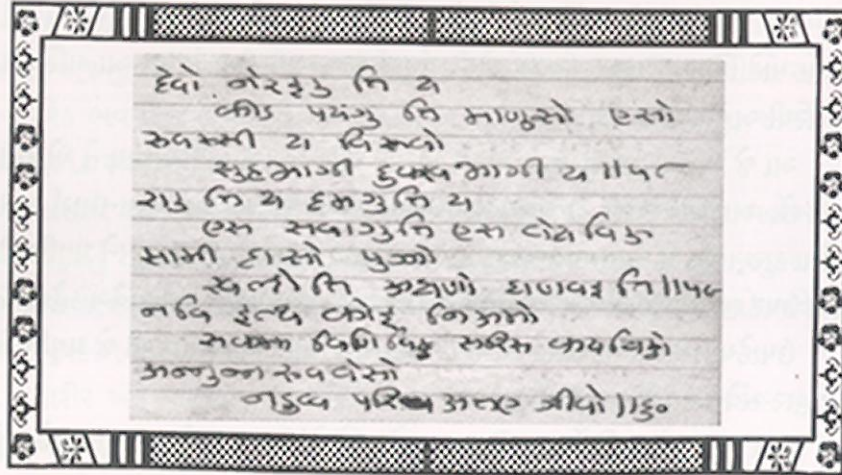 देवो नेरइउ त्ति य
कीड पयंगु त्ति माणुसो एसो
रूवस्सी य विरूवो
सुहभागी दुक्खभागी य ॥५८
राउ त्ति य दमगु त्ति य
एस सवागु त्ति एस वेयविऊ
सामी दासो पुज्जो
खलो त्ति अधणो धणवइ त्ति ॥५९
नवि इत्थ कोइ निअमो
सकम्म विणिविट्ठ सरिस कयचिट्ठो
अन्नुन्न रूववेसो
नडुव्व परिअत्तए जीवो ॥६०